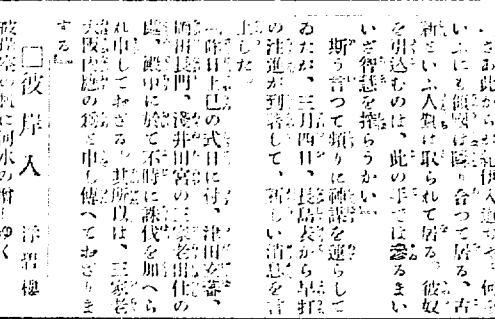 さあ此からが紀伊入道ぢや、何
いふにも領國は隣り合つて居る、古
新といふ人質は取られて居る。彼奴
を引込むのは、此の手では參るまい
いざ智慧を搾らうかい』
斯う言つて頻りに神謀を運らして
ゐたが、三月四日、長島表から早打
の注進が到著して、新しい消息を言
上した。
『昨日上巳の式日に付、津田玄蕃、
岡田長門、淺井田宮の三家老出仕の
處、殿中に於て不時に誅伐を加へら
れ申しておざる。其所以は、三家老
大阪内應の爲と申し傳へておざりま
する』
□彼岸入
彼岸 に河水の増しゆく